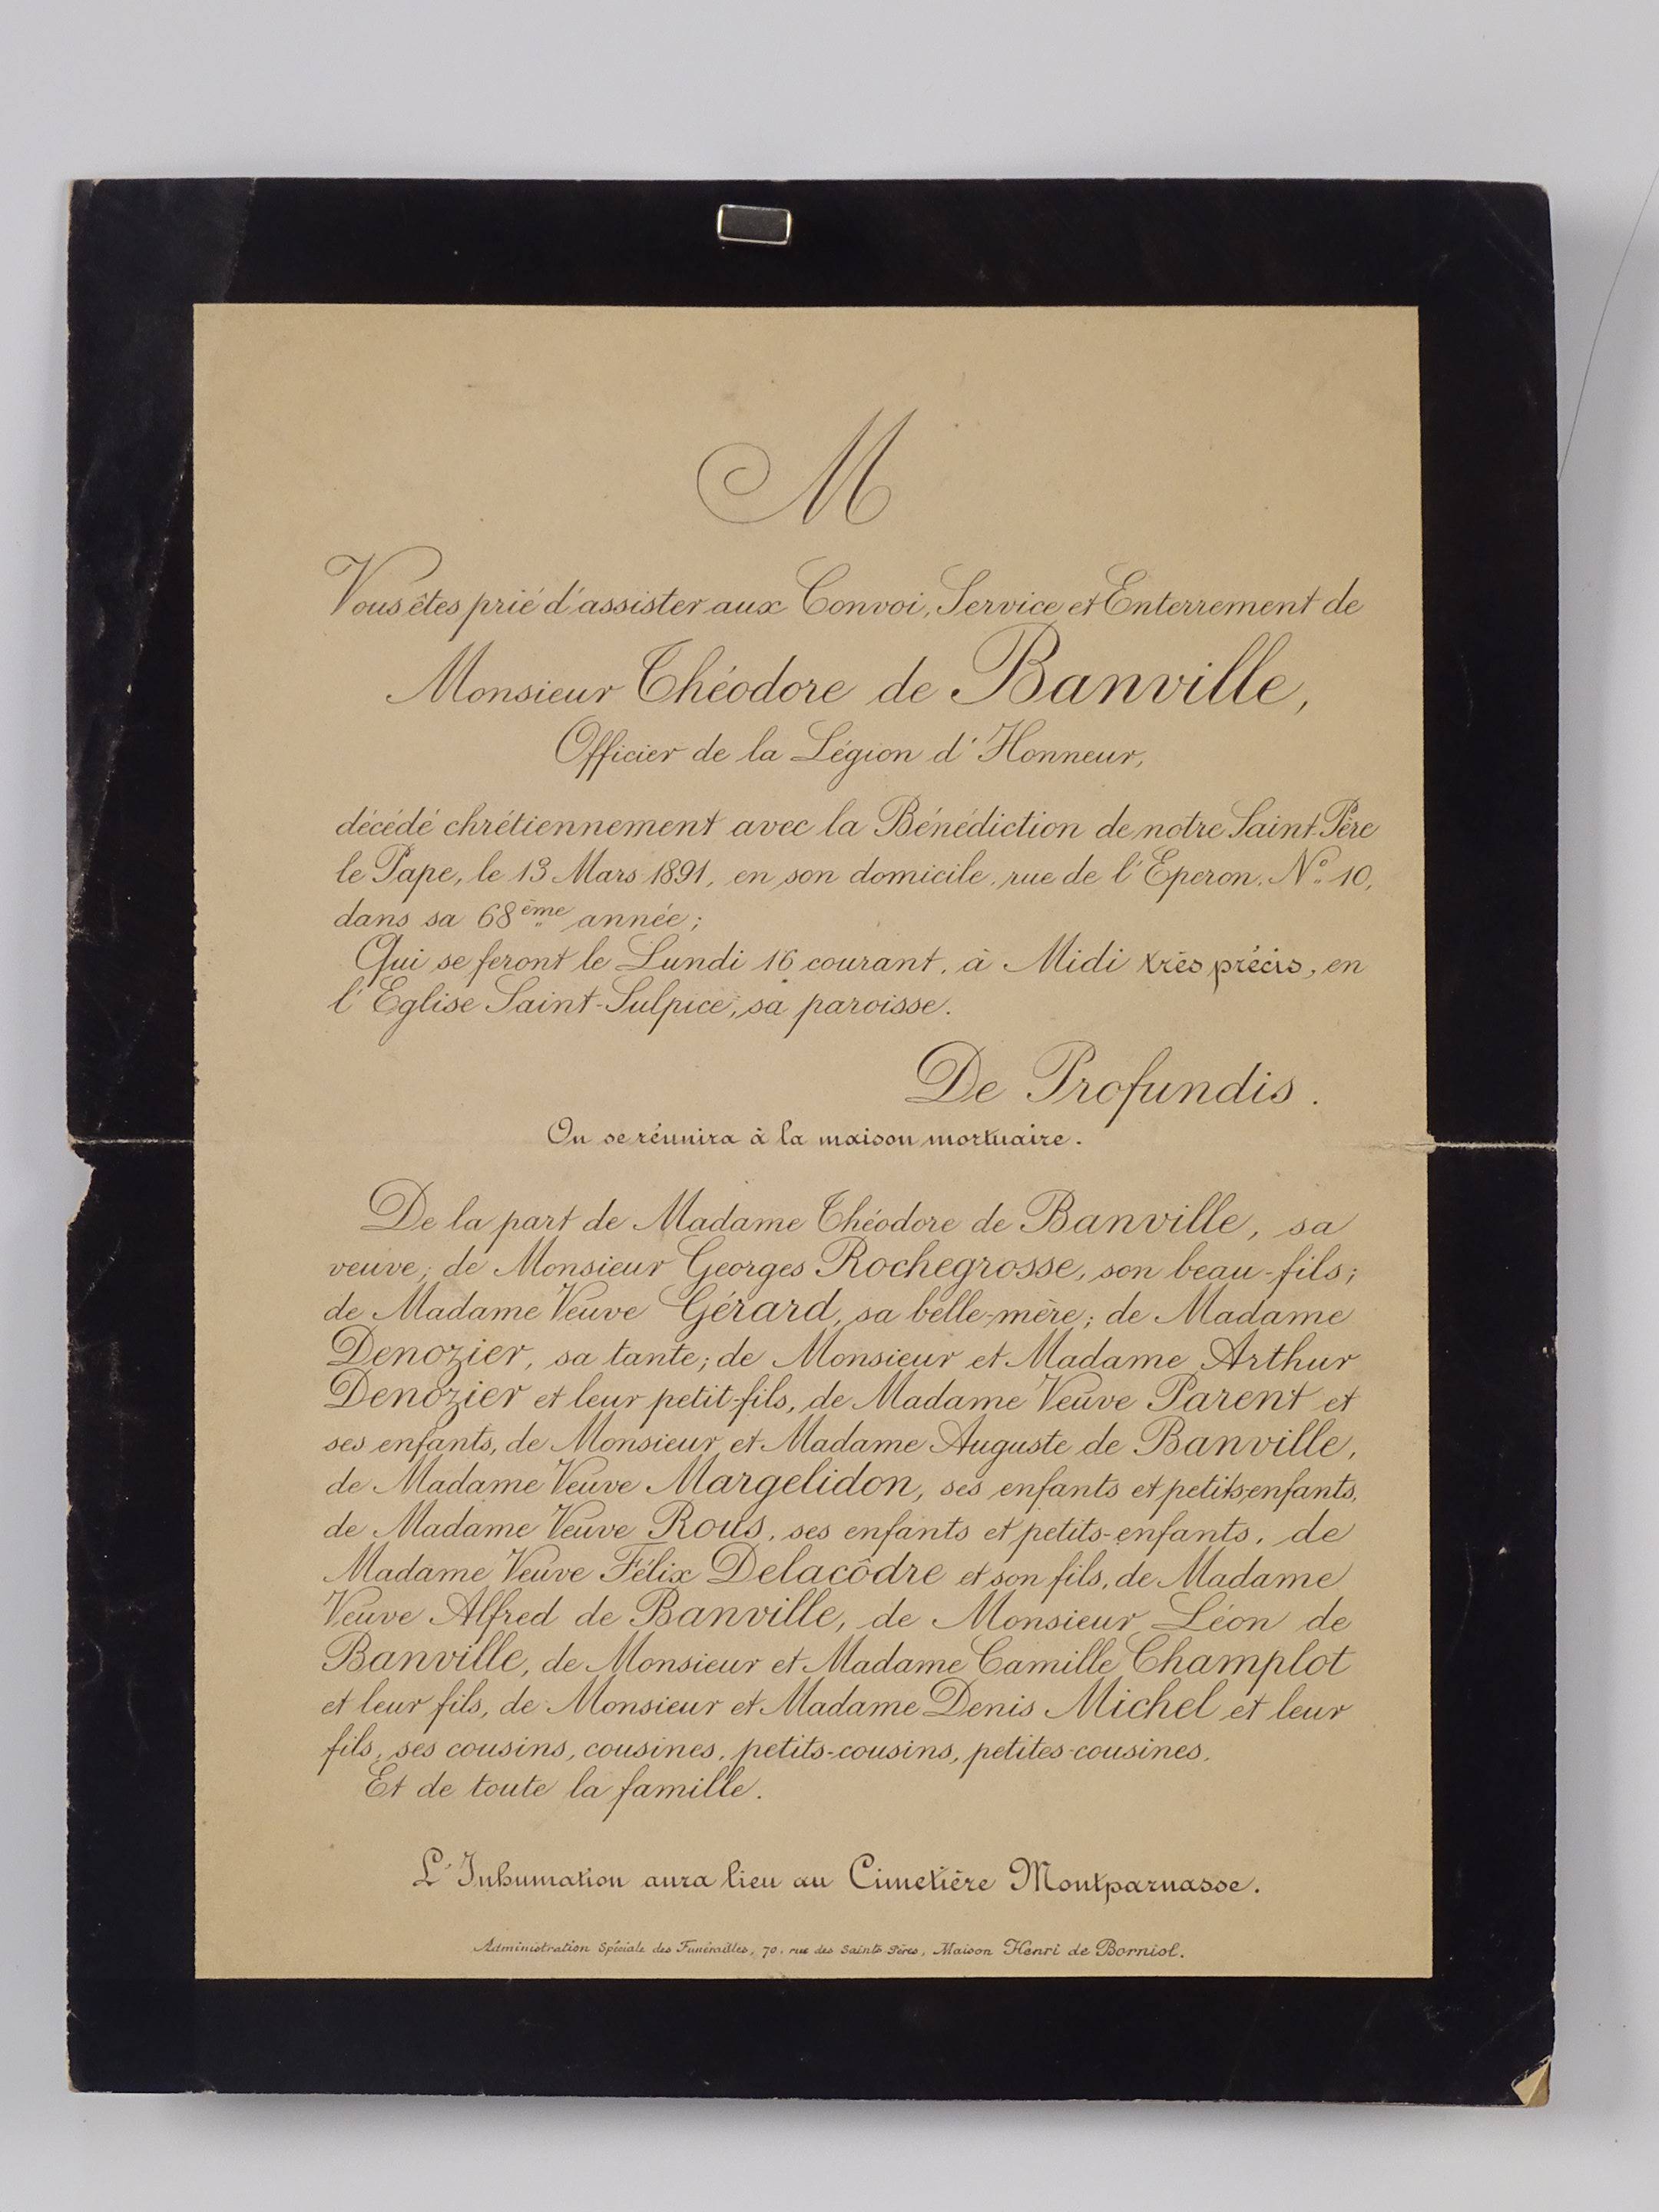 M
Vous êtes prié d'assister aux Convoi, Service et Enterrement de
Monsieur Théodore de Banville,
Officier de la Légion d'Honneur,
décédé chrétiennement avec la Bénédiction de notre Saint-Père
le Pape, le 13 Mars 1891, en son domicile, rue de l'Eperon, N.º 10,
dans sa 68ème année;
Qui se feront le Lundi 16 courant, à Midi très précis, en
l'Eglise Saint-Sulpice, sa paroisse.
De Profundis.
On se réunira à la maison mortuaire.
De la part de Madame Théodore de Banville, sa
veuve; de Monsieur Georges Rochegrosse, son beau-fils;
de Madame Veuve Gérard, sa belle-mère; de Madame
Denozier, sa tante; de Monsieur et Madame Arthur
Denozier et leur petit-fils, de Madame Veuve Parent et
ses enfants, de Monsieur et Madame Auguste de Banville,
de Madame Veuve Margelidon, ses enfants et petits-enfants,
de Madame Veuve Rous, ses enfants et petits-enfants, de
Madame Veuve Félix Delacôdre et son fils, de Madame
Veuve Alfred de Banville, de Monsieur Léon de
Banville, de Monsieur et Madame Camille Champlot
et leur fils, de Monsieur et Madame Denis Michel et leur
fils, ses cousins, cousines, petits-cousins, petites-cousines,
Et de toute la famille.
L'Inhumation aura lieu au Cimetière Montparnasse.
Administration Spéciale des Funérailles, 70, rue des Saints Pères, Maison Henri de Borniol.